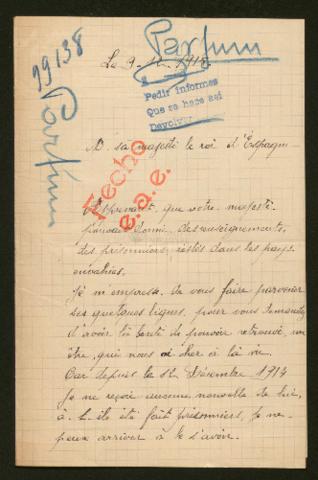 19138
Parfum
Parfum
Le 9 1915
Pedir informes
Que se hace asi
Devolver
Fecho
e.a.e.
A sa majesté le roi d'Espagne
Apprenant, que votre majesté
pouvait donner des renseignements,
des prisonniers, restés dans les pays
envahies,
Je m'empresse de vous faire parvenir
ses quelques lignes, pour vous demander
d'avoir la bonté de pouvoir retrouvé, un
être, qui nous si cher à la vie.
Car depuis le 12 Décembre 1914
Je ne reçoie aucune nouvelle de lui,
a-t-ile été fait prisonniers, Je ne
peux arriver à le savoir.